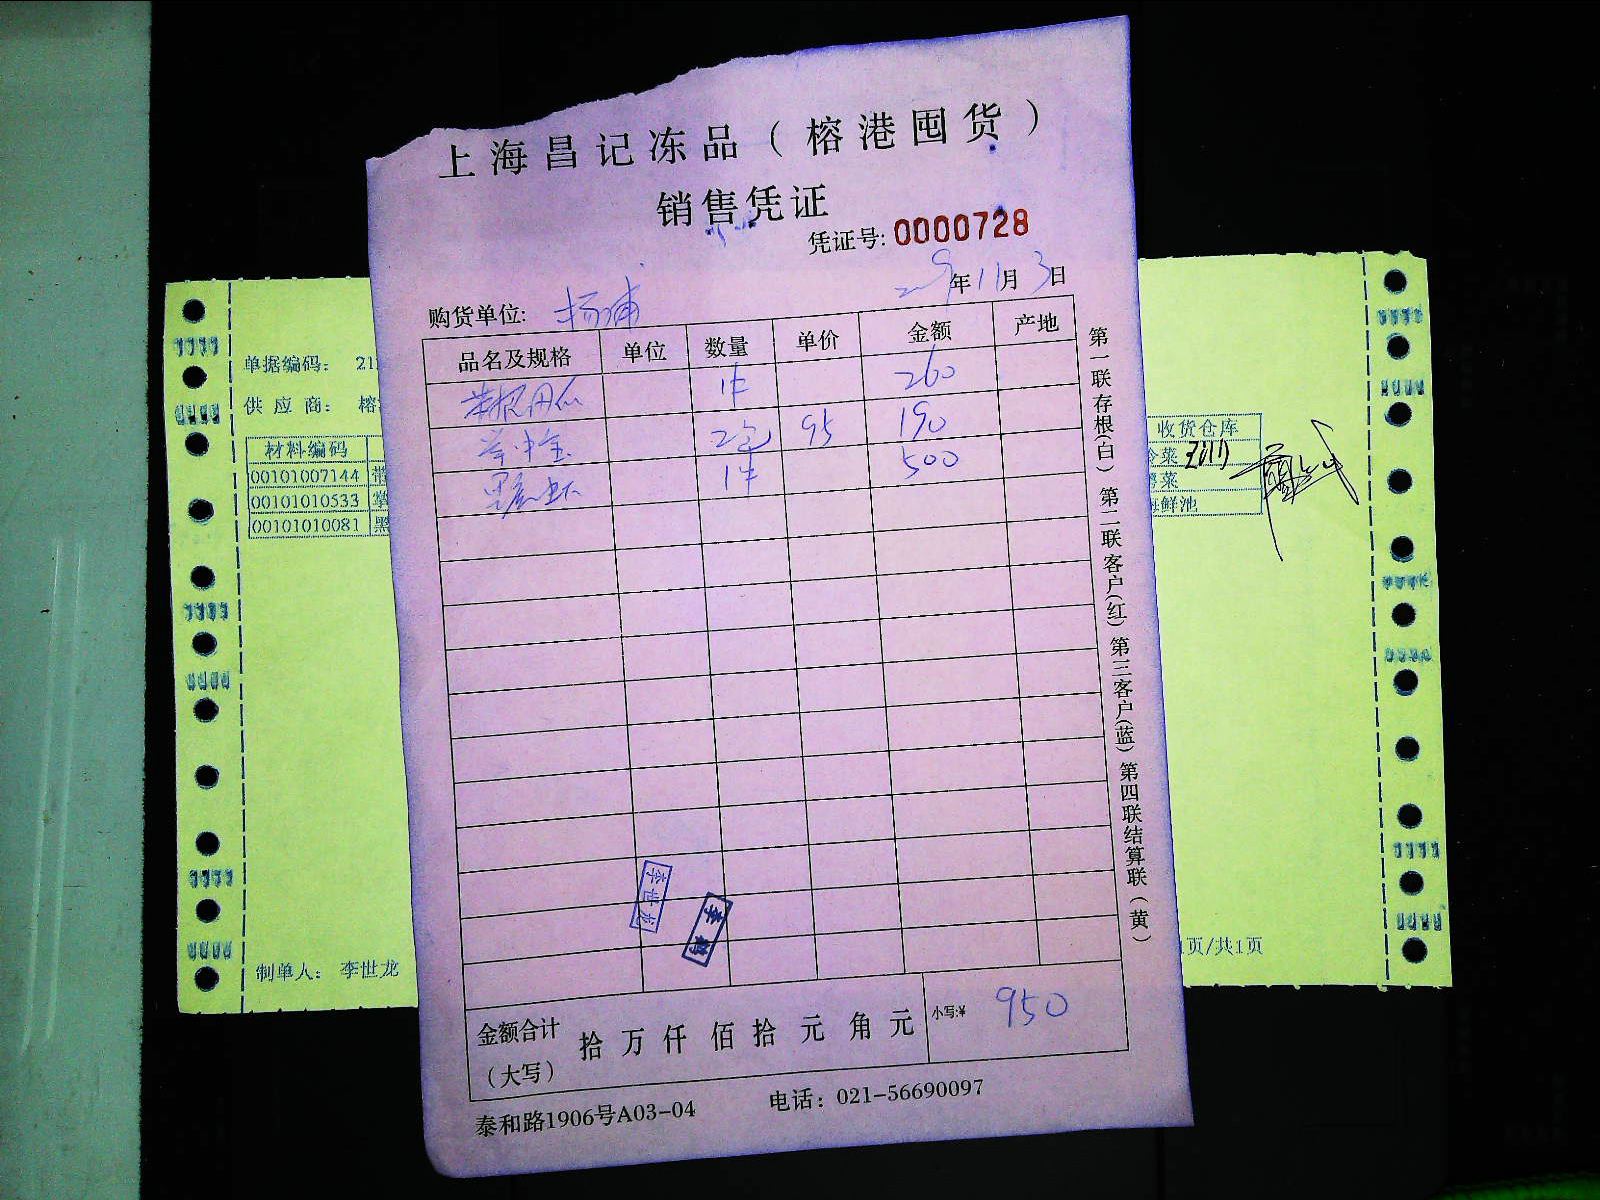 上海昌记冻品（榕港囤货）
销售凭证
凭证号: 0000728
年11月3日
购货单位: 杨浦
品名及规格 单位 数量 单价 金额 产地
1件 260
2包 95 190
黑虎虾 1件 500
李世龙
李
金额合计（大写） 拾万仟佰拾元角元 小写:¥ 950
泰和路1906号A03-04 电话：021-56690097
第一联存根(白) 第二联客户(红) 第三客户(蓝) 第四联结算联（黄）
单据编码： 21
供应商： 榕
材料编码 收货仓库
00101007144 冷菜
00101010533
00101010081 黑 海鲜池
制单人： 李世龙
1页/共1页